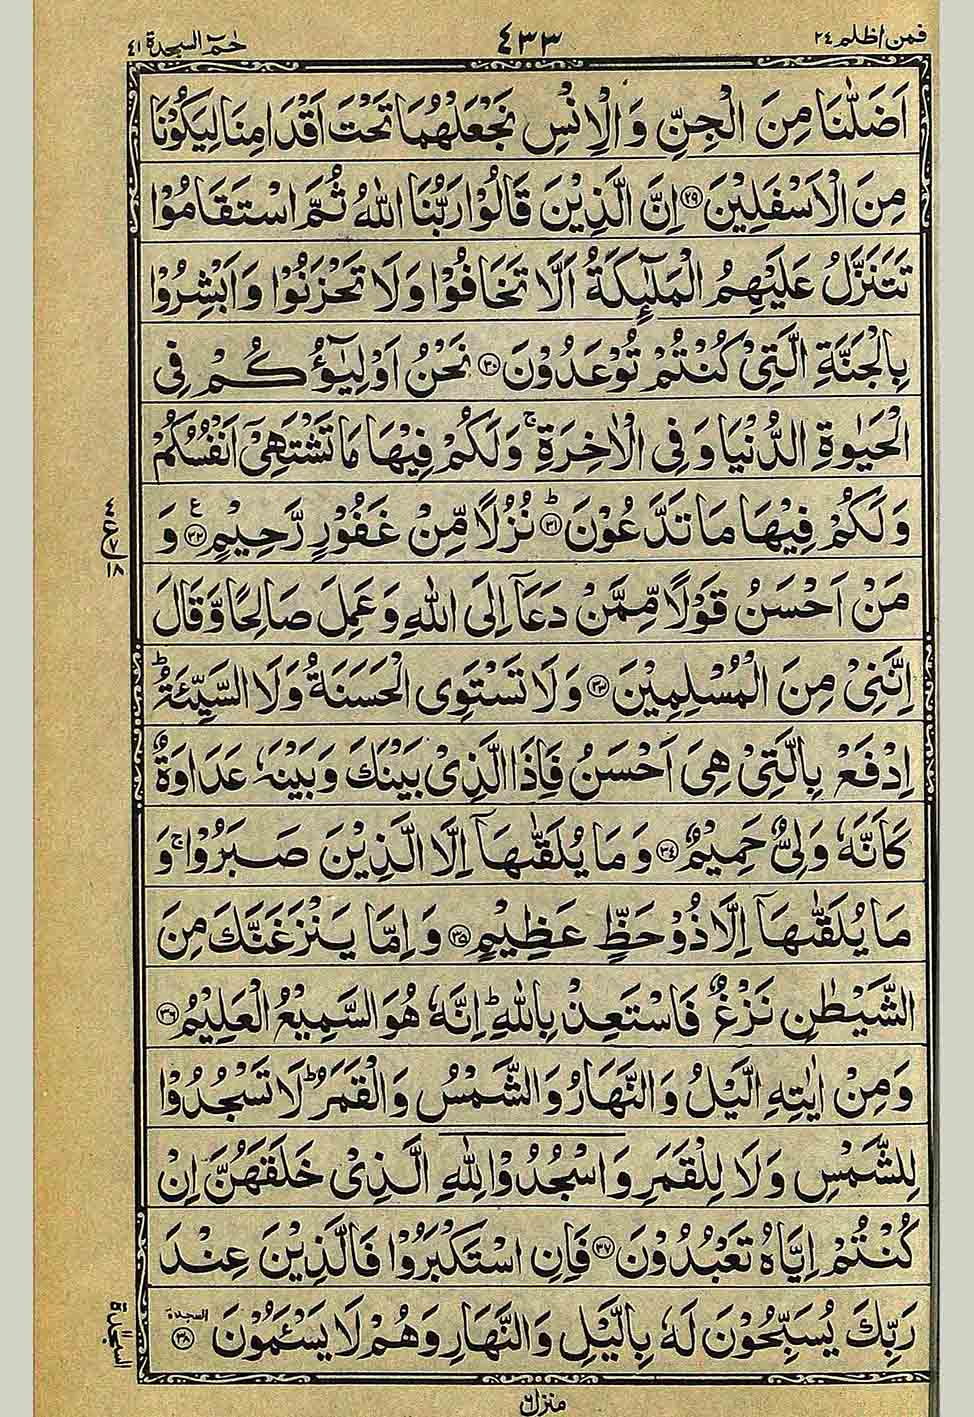 فمن اظلم ٢٤ ٤٣٣ حٰمٓ السجدة ٤١
اَضَلّٰنَا مِنَ الْجِنِّ وَ الْاِنْسِ نَجْعَلْهُمَا تَحْتَ اَقْدَامِنَا لِيَكُوْنَا
مِنَ الْاَسْفَلِيْنَ ﴿٢٩﴾ اِنَّ الَّذِيْنَ قَالُوْا رَبُّنَا اللّٰهُ ثُمَّ اسْتَقَامُوْا
تَتَنَزَّلُ عَلَيْهِمُ الْمَلٰٓئِكَةُ اَلَّا تَخَافُوْا وَلَا تَحْزَنُوْا وَ اَبْشِرُوْا
بِالْجَنَّةِ الَّتِيْ كُنْتُمْ تُوْعَدُوْنَ ﴿٣٠﴾ نَحْنُ اَوْلِيٰٓؤُكُمْ فِي
الْحَيٰوةِ الدُّنْيَا وَ فِي الْاٰخِرَةِ ۚ وَلَكُمْ فِيْهَا مَا تَشْتَهِيْٓ اَنْفُسُكُمْ
وَ لَكُمْ فِيْهَا مَا تَدَّعُوْنَ ﴿٣١﴾ ؕ نُزُلًا مِّنْ غَفُوْرٍ رَّحِيْمٍ ﴿٣٢﴾ ع وَ
مَنْ اَحْسَنُ قَوْلًا مِّمَّنْ دَعَاۤ اِلَى اللّٰهِ وَ عَمِلَ صَالِحًا وَّ قَالَ
اِنَّنِيْ مِنَ الْمُسْلِمِيْنَ ﴿٣٣﴾ وَ لَا تَسْتَوِي الْحَسَنَةُ وَ لَا السَّيِّئَةُ ؕ
اِدْفَعْ بِالَّتِيْ هِيَ اَحْسَنُ فَاِذَا الَّذِيْ بَيْنَكَ وَ بَيْنَهٗ عَدَاوَةٌ
كَاَنَّهٗ وَلِيٌّ حَمِيْمٌ ﴿٣٤﴾ وَ مَا يُلَقّٰىهَاۤ اِلَّا الَّذِيْنَ صَبَرُوْا ۚ وَ
مَا يُلَقّٰىهَاۤ اِلَّا ذُوْ حَظٍّ عَظِيْمٍ ﴿٣٥﴾ وَ اِمَّا يَنْزَغَنَّكَ مِنَ
الشَّيْطٰنِ نَزْغٌ فَاسْتَعِذْ بِاللّٰهِ ؕ اِنَّهٗ هُوَ السَّمِيْعُ الْعَلِيْمُ ﴿٣٦﴾
وَ مِنْ اٰيٰتِهِ الَّيْلُ وَ النَّهَارُ وَ الشَّمْسُ وَ الْقَمَرُ ؕ لَا تَسْجُدُوْا
لِلشَّمْسِ وَ لَا لِلْقَمَرِ وَ اسْجُدُوْا لِلّٰهِ الَّذِيْ خَلَقَهُنَّ اِنْ
كُنْتُمْ اِيَّاهُ تَعْبُدُوْنَ ﴿٣٧﴾ فَاِنِ اسْتَكْبَرُوْا فَالَّذِيْنَ عِنْدَ
رَبِّكَ يُسَبِّحُوْنَ لَهٗ بِالَّيْلِ وَ النَّهَارِ وَ هُمْ لَا يَسْئَمُوْنَ ﴿٣٨﴾ السجدة
ع ١٨
السجدة
منزل ٦